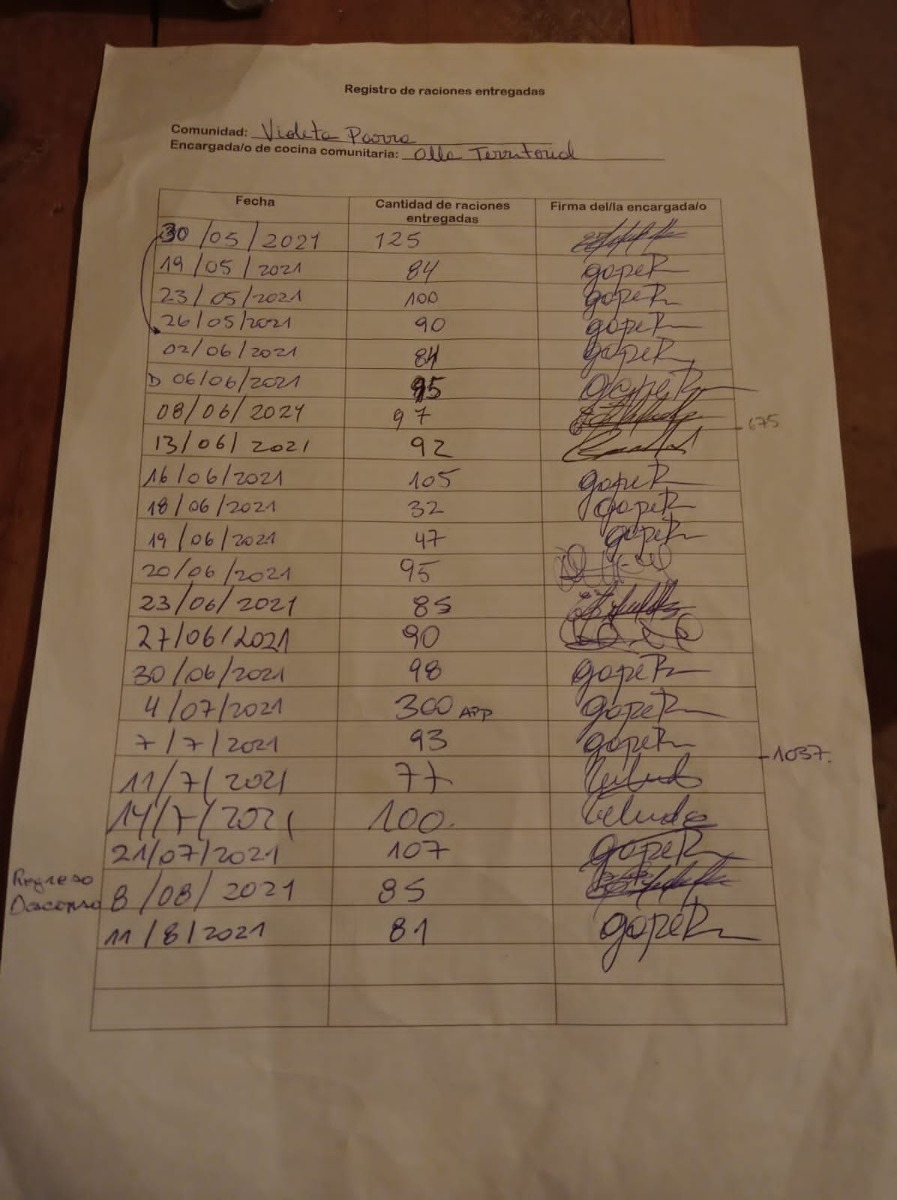 Registro de raciones entregadas
Comunidad: Violeta Parra
Encargada/o de cocina comunitaria: Olla Territorial
Fecha Cantidad de raciones entregadas Firma del/la encargada/o
30/05/2021 125
19/05/2021 84 gopeR
23/05/2021 100 gopeR
26/05/2021 90 gopeR
02/06/2021 84 gopeR
D 06/06/2021 95 gopeR
08/06/2021 97
675
13/06/2021 92
16/06/2021 105 gopeR
18/06/2021 32 gopeR
19/06/2021 47 gopeR
20/06/2021 95
23/06/2021 85
27/06/2021 90
30/06/2021 98 gopeR
4/07/2021 300 APP gopeR
7/7/2021 93 gopeR
1037.
11/7/2021 77
14/7/2021 100.
21/07/2021 107 gopeR
Regreso Descanso 8/08/2021 85
11/8/2021 81 gopeR